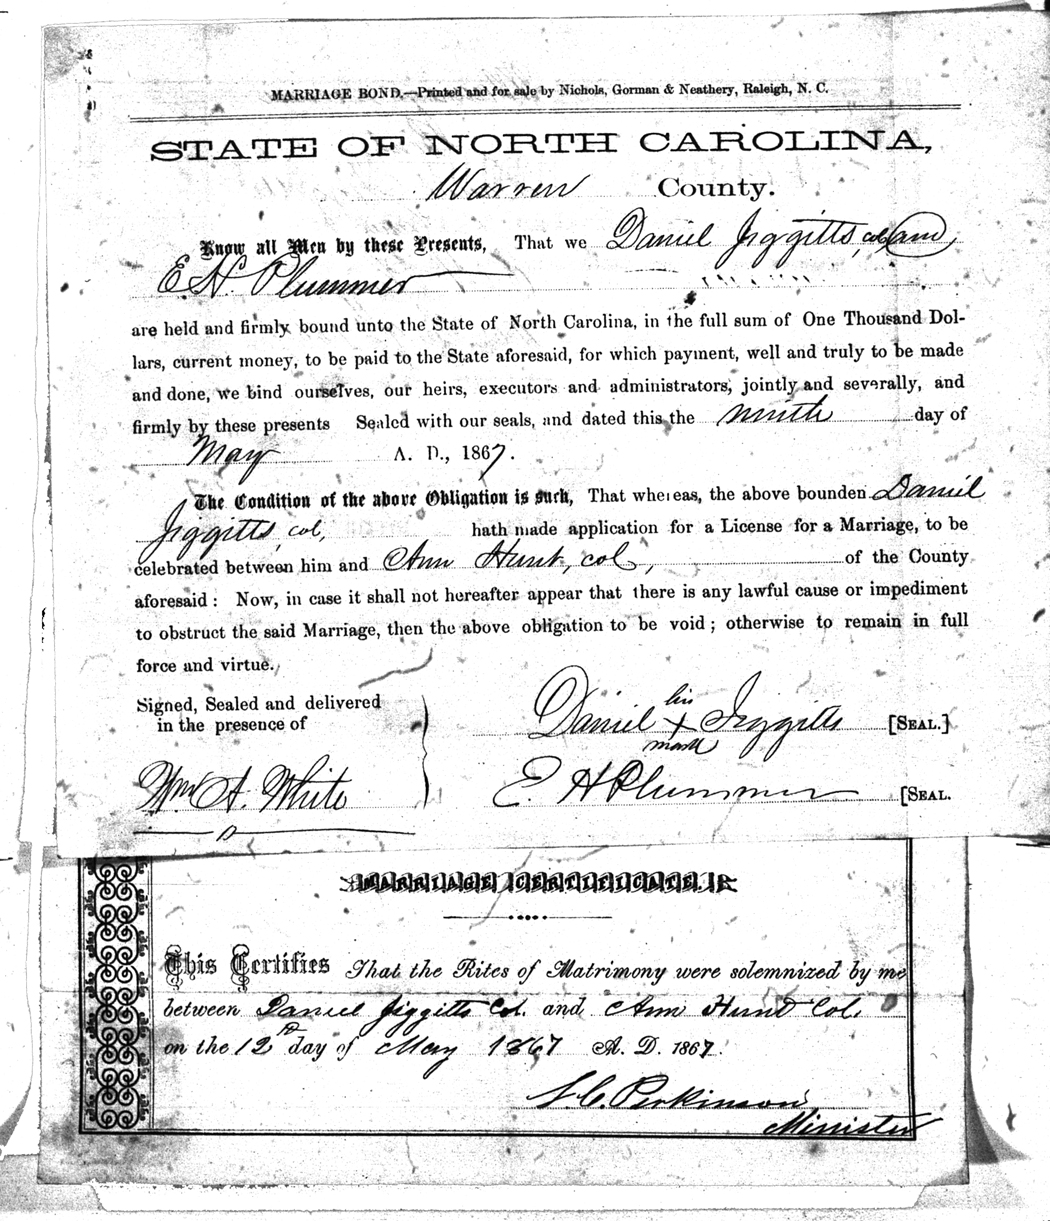 MARRIAGE BOND.—Printed and for sale by Nichols, Gorman & Neathery, Raleigh, N. C.
STATE OF NORTH CAROLINA,
Warren County.
Know all Men by these Presents, That we Daniel Jiggitts, col, and
E. H. Plummer
are held and firmly bound unto the State of North Carolina, in the full sum of One Thousand Dol-
lars, current money, to be paid to the State aforesaid, for which payment, well and truly to be made
and done, we bind ourselves, our heirs, executors and administrators, jointly and severally, and
firmly by these presents Sealed with our seals, and dated this the ninth day of
May A. D., 1867.
The Condition of the above Obligation is such, That whereas, the above bounden Daniel
Jiggitts, col, hath made application for a License for a Marriage, to be
celebrated between him and Ann Hunt, col, of the County
aforesaid: Now, in case it shall not hereafter appear that there is any lawful cause or impediment
to obstruct the said Marriage, then the above obligation to be void; otherwise to remain in full
force and virtue.
Signed, Sealed and delivered
in the presence of
Wm A. White
his
Daniel X Jiggitts [SEAL.]
mark
E. H Plummer [SEAL.
MARRIAGE CERTIFICATE.
This Certifies That the Rites of Matrimony were solemnized by me
between Daniel Jiggitts Col. and Ann Hunt Col.
on the 12 day of May 1867 A. D. 1867.
Perkinson
Minister